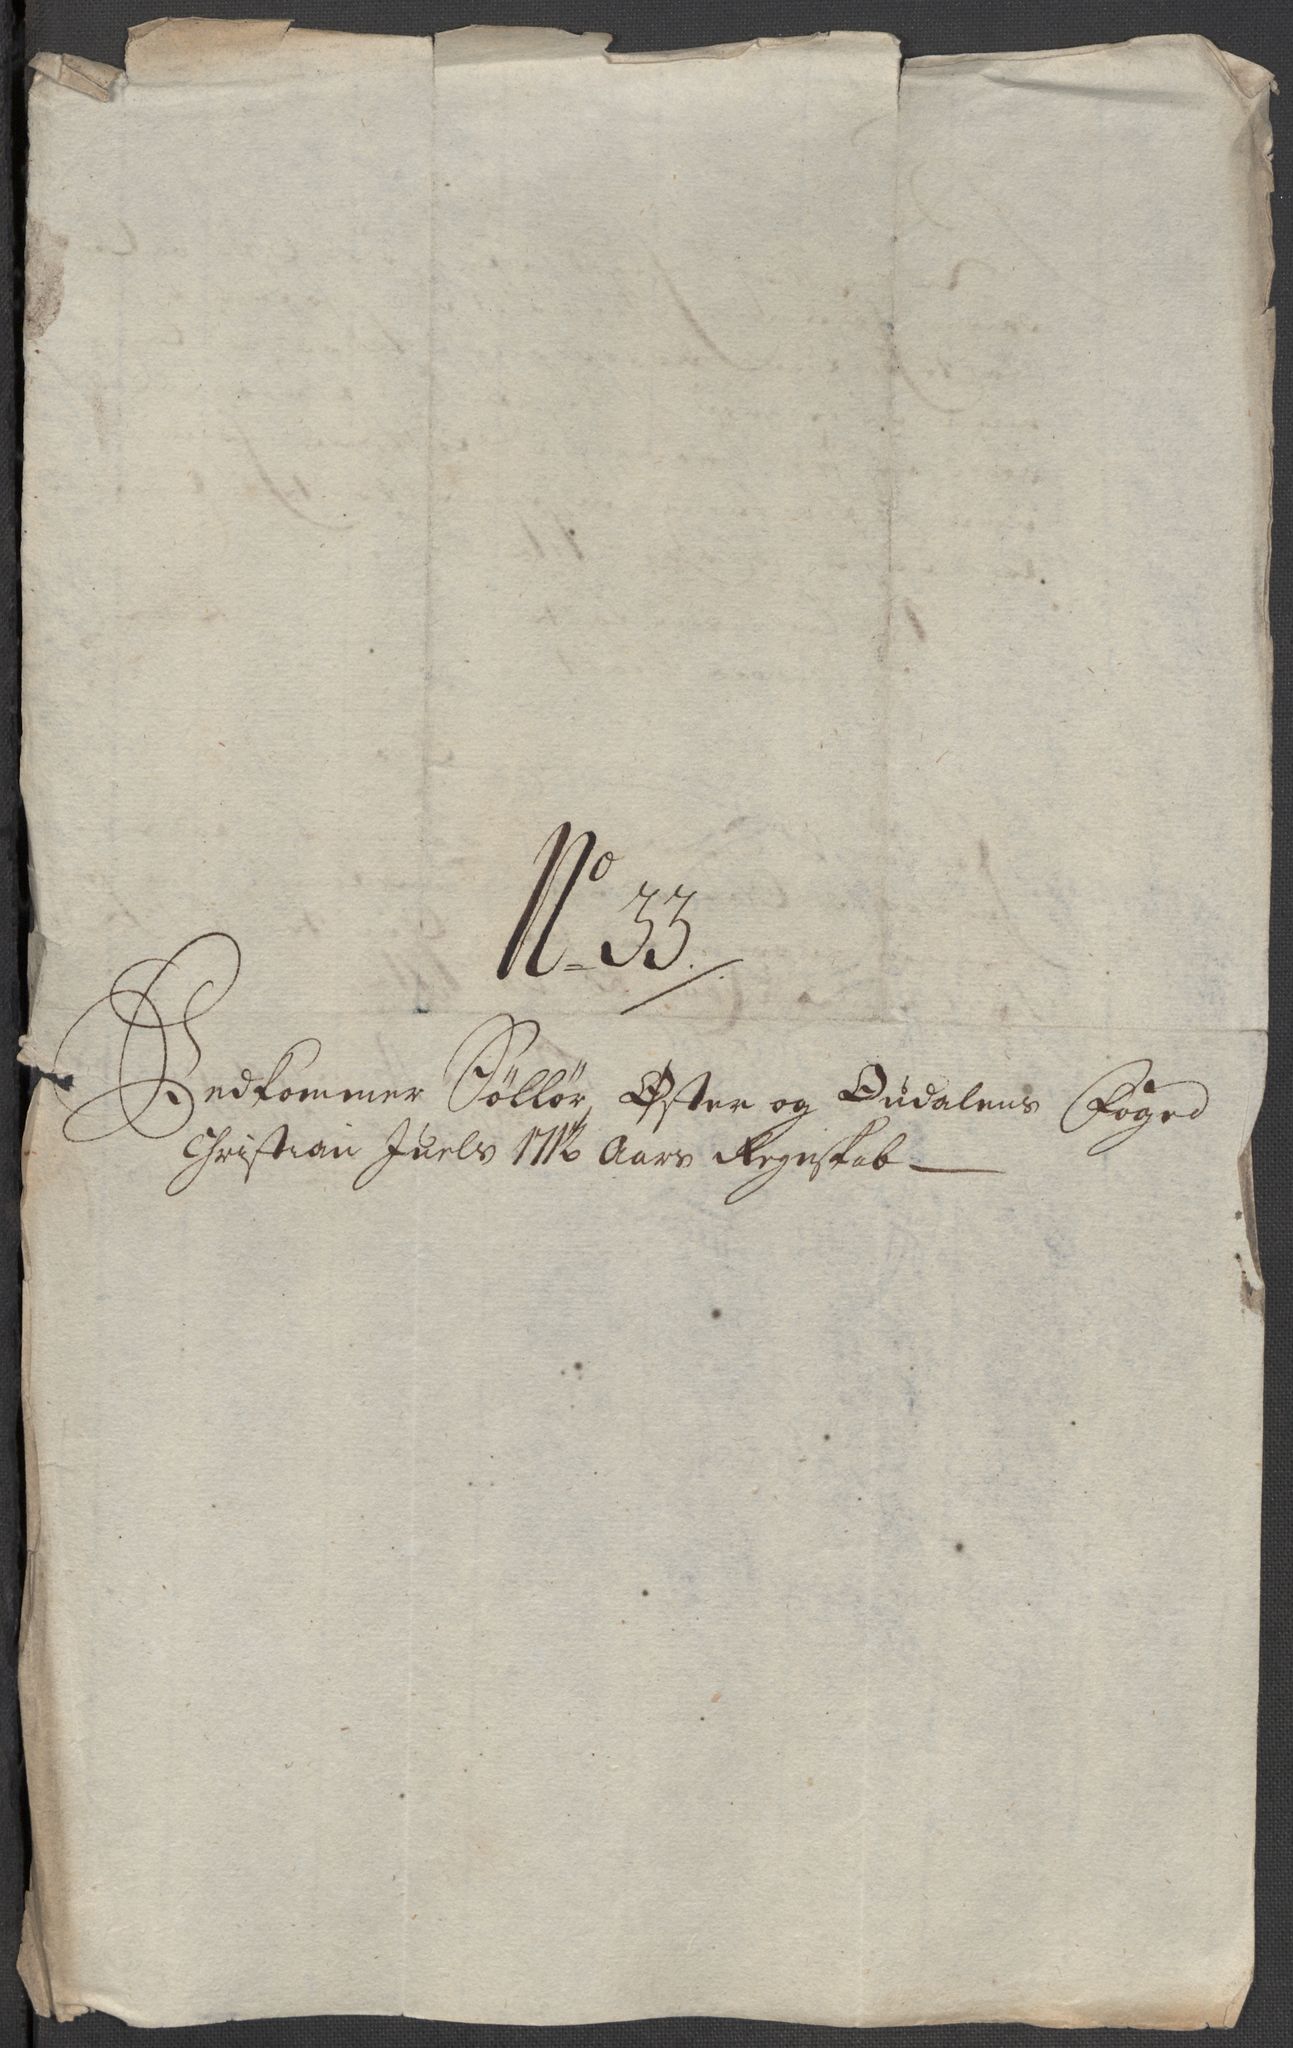 No 33.
Vedkommer Söllör, Øster og Oudalens Foged
Christian Juels 1716 Aars Regnskab